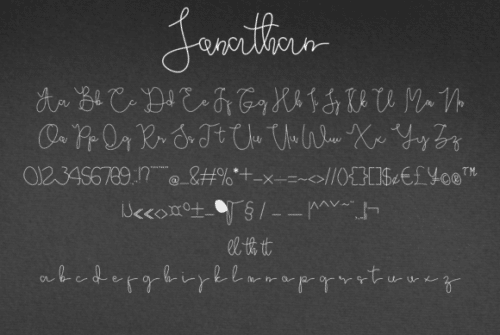 Jonathan
Aa Bb Cc Dd Ee Ff Gg Hh Ii Jj Kk Ll Mm Nn
Oo Pp Qq Rr Ss Tt Uu Vv Ww Xx Yy Zz
0123456789.
@_&#%*+-×-=~<>//(){}[]$¢€£¥©®™
§ / _ _
ll tth tt
a b c d e f g h i j k l m n o p q r s t u v w x z